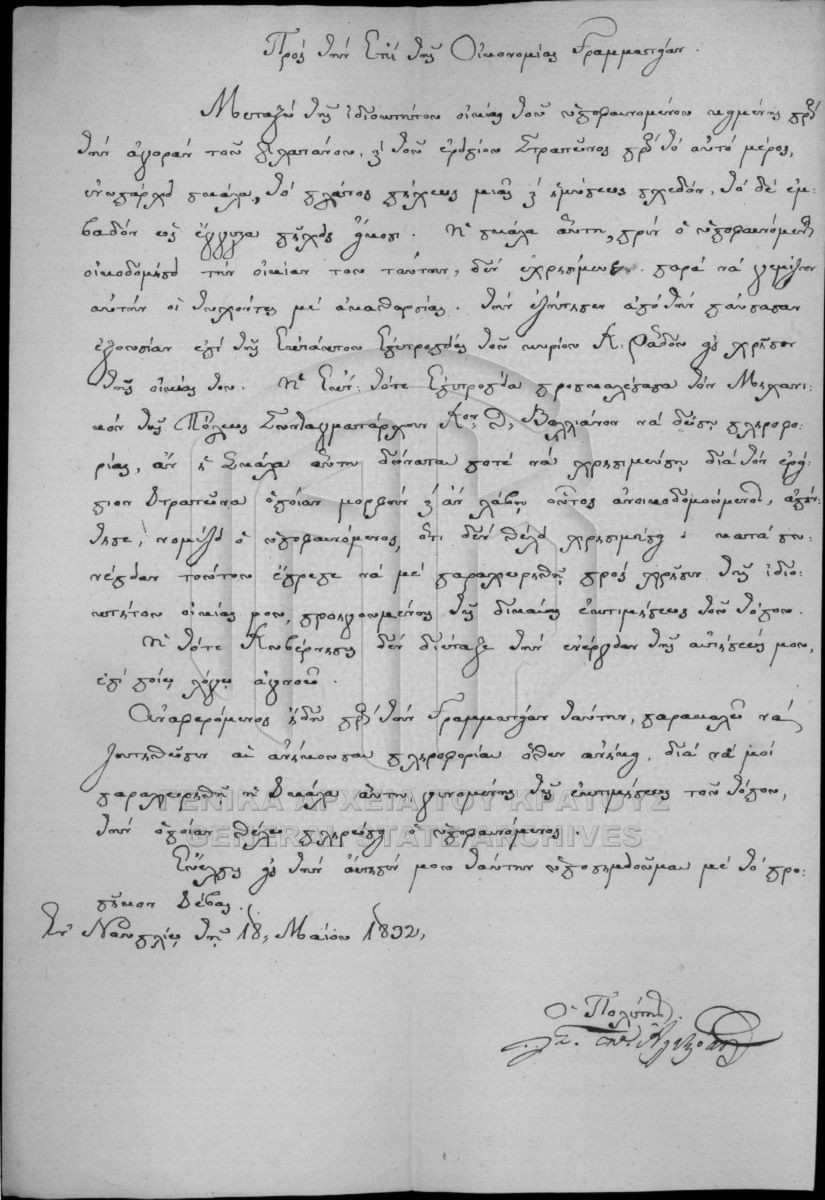 Πρὸς τὴν Ἐπὶ τῆς Οἰκονομίας Γραμματείαν.
Μεταξὺ τῆς ἰδιοκτήτου οἰκίας τοῦ ὑποφαινομένου κειμένης πρὸς
τὴν ἀγορὰν τοῦ καὶ τοῦ ἐρειπίου πρὸς τὸ αὐτὸ μέρος,
ἐνυπάρχει σκάλα, τὸ πλάτος πήχεως μιᾶς καὶ ἡμίσεως σχεδὸν, τὸ δὲ ἐμ-
βαδὸν ὡς ἔγγιστα πήχεις εἴκοσι. Ἡ σκάλα αὕτη, πρὶν ὁ ὑποφαινόμενος
οἰκοδομήσει τὴν οἰκίαν του ταύτην, δὲν ἐχρησίμευεν παρὰ νὰ γεμίζουν
αὐτὴν οἱ τυχόντες μὲ ἀκαθαρσίας. Τὴν ἐζήτησεν ἀπὸ τὴν παύσασαν
ἐξουσίαν ἐπὶ τῆς Ἐκτάκτου Ἐπιτροπείας τοῦ κυρίου Κ: Ῥάδου εἰς χρῆσιν
τῆς οἰκίας του. Ἡ Ἐκτ: τότε Ἐπιτροπεία προσκαλέσασα τὸν Μηχανι-
κὸν τῆς Πόλεως Συνταγματάρχην Κον Θ, Βαλλιάνον νὰ δώσῃ πληροφο-
ρίας, ἂν ἡ Σκάλα αὕτη δύναται ποτὲ νὰ χρησιμεύσῃ διὰ τὸν ἐρεί-
πιον ὁποίαν μορφὴν καὶ ἂν λάβῃ οὗτος ἀνοικοδομούμενος, ἀπήν-
τησε, νομίζει ὁ ὑποφαινόμενος, ὅτι δὲν θέλει χρησιμεύσει κατὰ συ-
νέπειαν τούτου ἔπρεπε νὰ μὲ παραχωρηθῇ πρὸς χρῆσιν τῆς ἰδιο-
κτήτου οἰκίας μου, προηγουμένης τῆς δικαίας ἐκτιμήσεως τοῦ τόπου.
Ἡ τότε Κυβέρνησις δὲν διέταξε τὴν ἐνέργειαν τῆς αἰτήσεώς μου,
ἐπὶ ποίῳ λόγῳ ἀγνοῶ.
Ἀναφερόμενος ἤδη πρὸς τὴν Γραμματείαν ταύτην, παρακαλῶ νὰ
ζητηθῶσιν αἱ ἀνήκουσαι πληροφορίαι ὅθεν ἀνήκει, διὰ νὰ μοὶ
παραχωρηθῇ ἡ Σκάλα αὕτη γινομένης τῆς ἐκτιμήσεως τοῦ τόπου,
τὴν ὁποίαν θέλει πληρώσει ὁ ὑποφαινόμενος.
Εὔελπις εἰς τὴν αἴτησίν μου ταύτην ὑποσημειοῦμαι μὲ τὸ προ-
σῆκον σέβας.
Ἐν Ναυπλίῳ τῇ 18, Μαΐου 1832,
Ὁ Πολίτης
ΓΕΝΙΚΑ ΑΡΧΕΙΑ ΤΟΥ ΚΡΑΤΟΥΣ
GENERAL STATE ARCHIVES